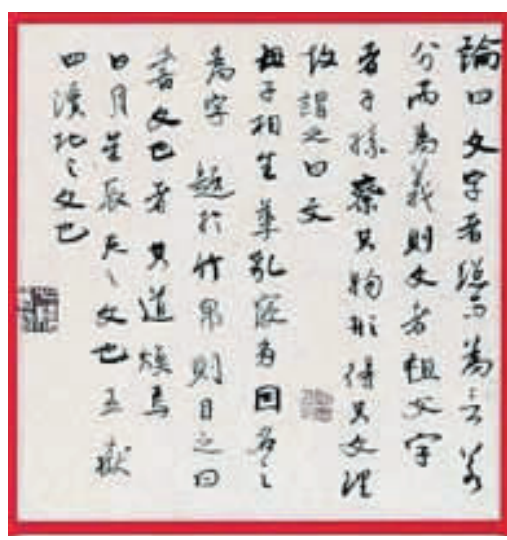 論曰文字者總而為言若
分而為義則文者祖父字
者子孫察其物形得其文理
故謂之曰文
母子相生孳乳寖多因名之
為字 題於竹帛則目之曰
書文也者其道煥焉
日月星辰天之文也五嶽
四瀆地之文也